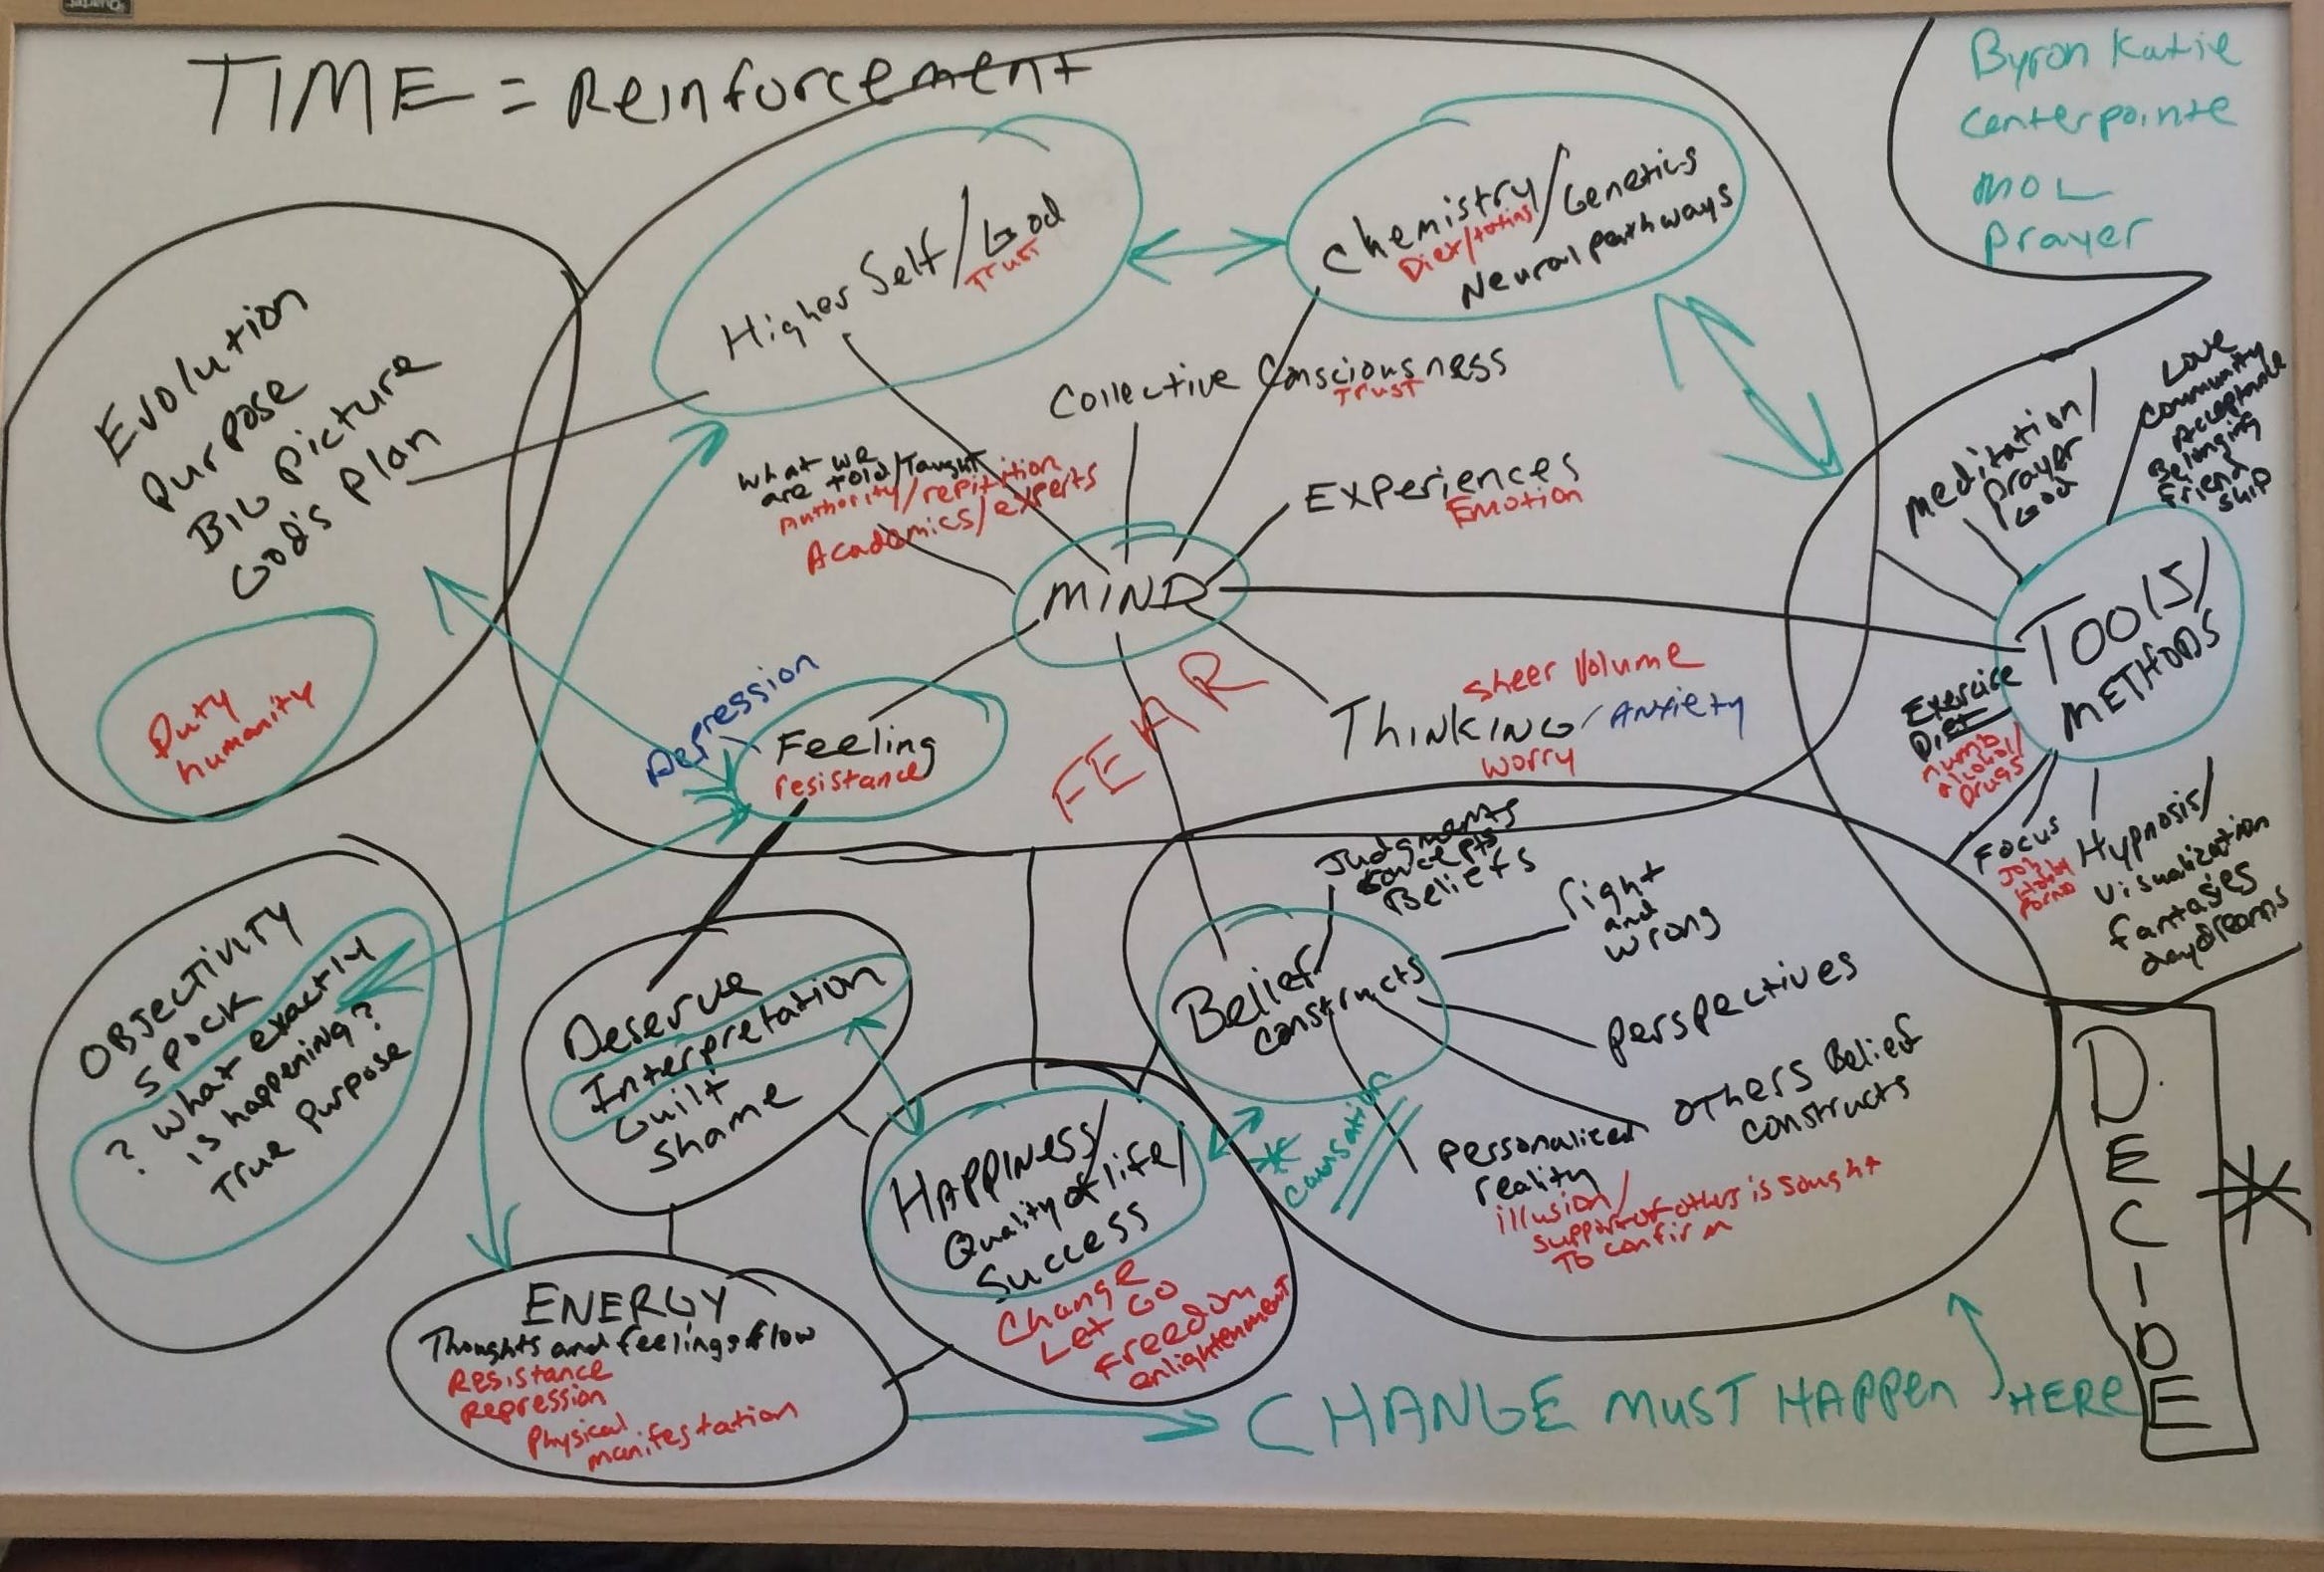 TIME = Reinforcement
Byron Katie
Centerpointe
MOL
Prayer
Evolution
Purpose
BIG Picture
God's Plan
Duty
humanity
Higher Self/God
Trust
Chemistry/Genetics
Neural pathways
Collective Consciousness
Trust
What we
are told/Taught
Authority/repitition
Academics/experts
Experiences
Emotion
MIND
FEAR
Sheer Volume
THINKING/Anxiety
worry
Depression
Feeling
resistance
Meditation/
Prayer
God
Love
Community
Acceptance
Belonging
Friend
ship
Tools/
METHODS
Exercise
Diet
numb
alcohol/
Drugs
Focus
Job
Hobby
Porno
Hypnosis/
Visualization
fantasies
daydreams
OBJECTIVITY
SPOCK
? What exactly
is happening?
True Purpose
Deserve
Interpretation
Guilt
Shame
Judgments
concepts
Beliefs
right
and
wrong
Belief
constructs
Perspectives
OTHERS Belief
constructs
Personalized
reality
illusion/
support of others is sought
To confirm
Causation
HAPPINESS/
Quality of life/
Success
Change
Let Go
Freedom
enlightenment
ENERGY
Thoughts and feelings flow
Resistance
Repression
Physical
manifestation
CHANGE MUST HAPPEN HERE
DECIDE